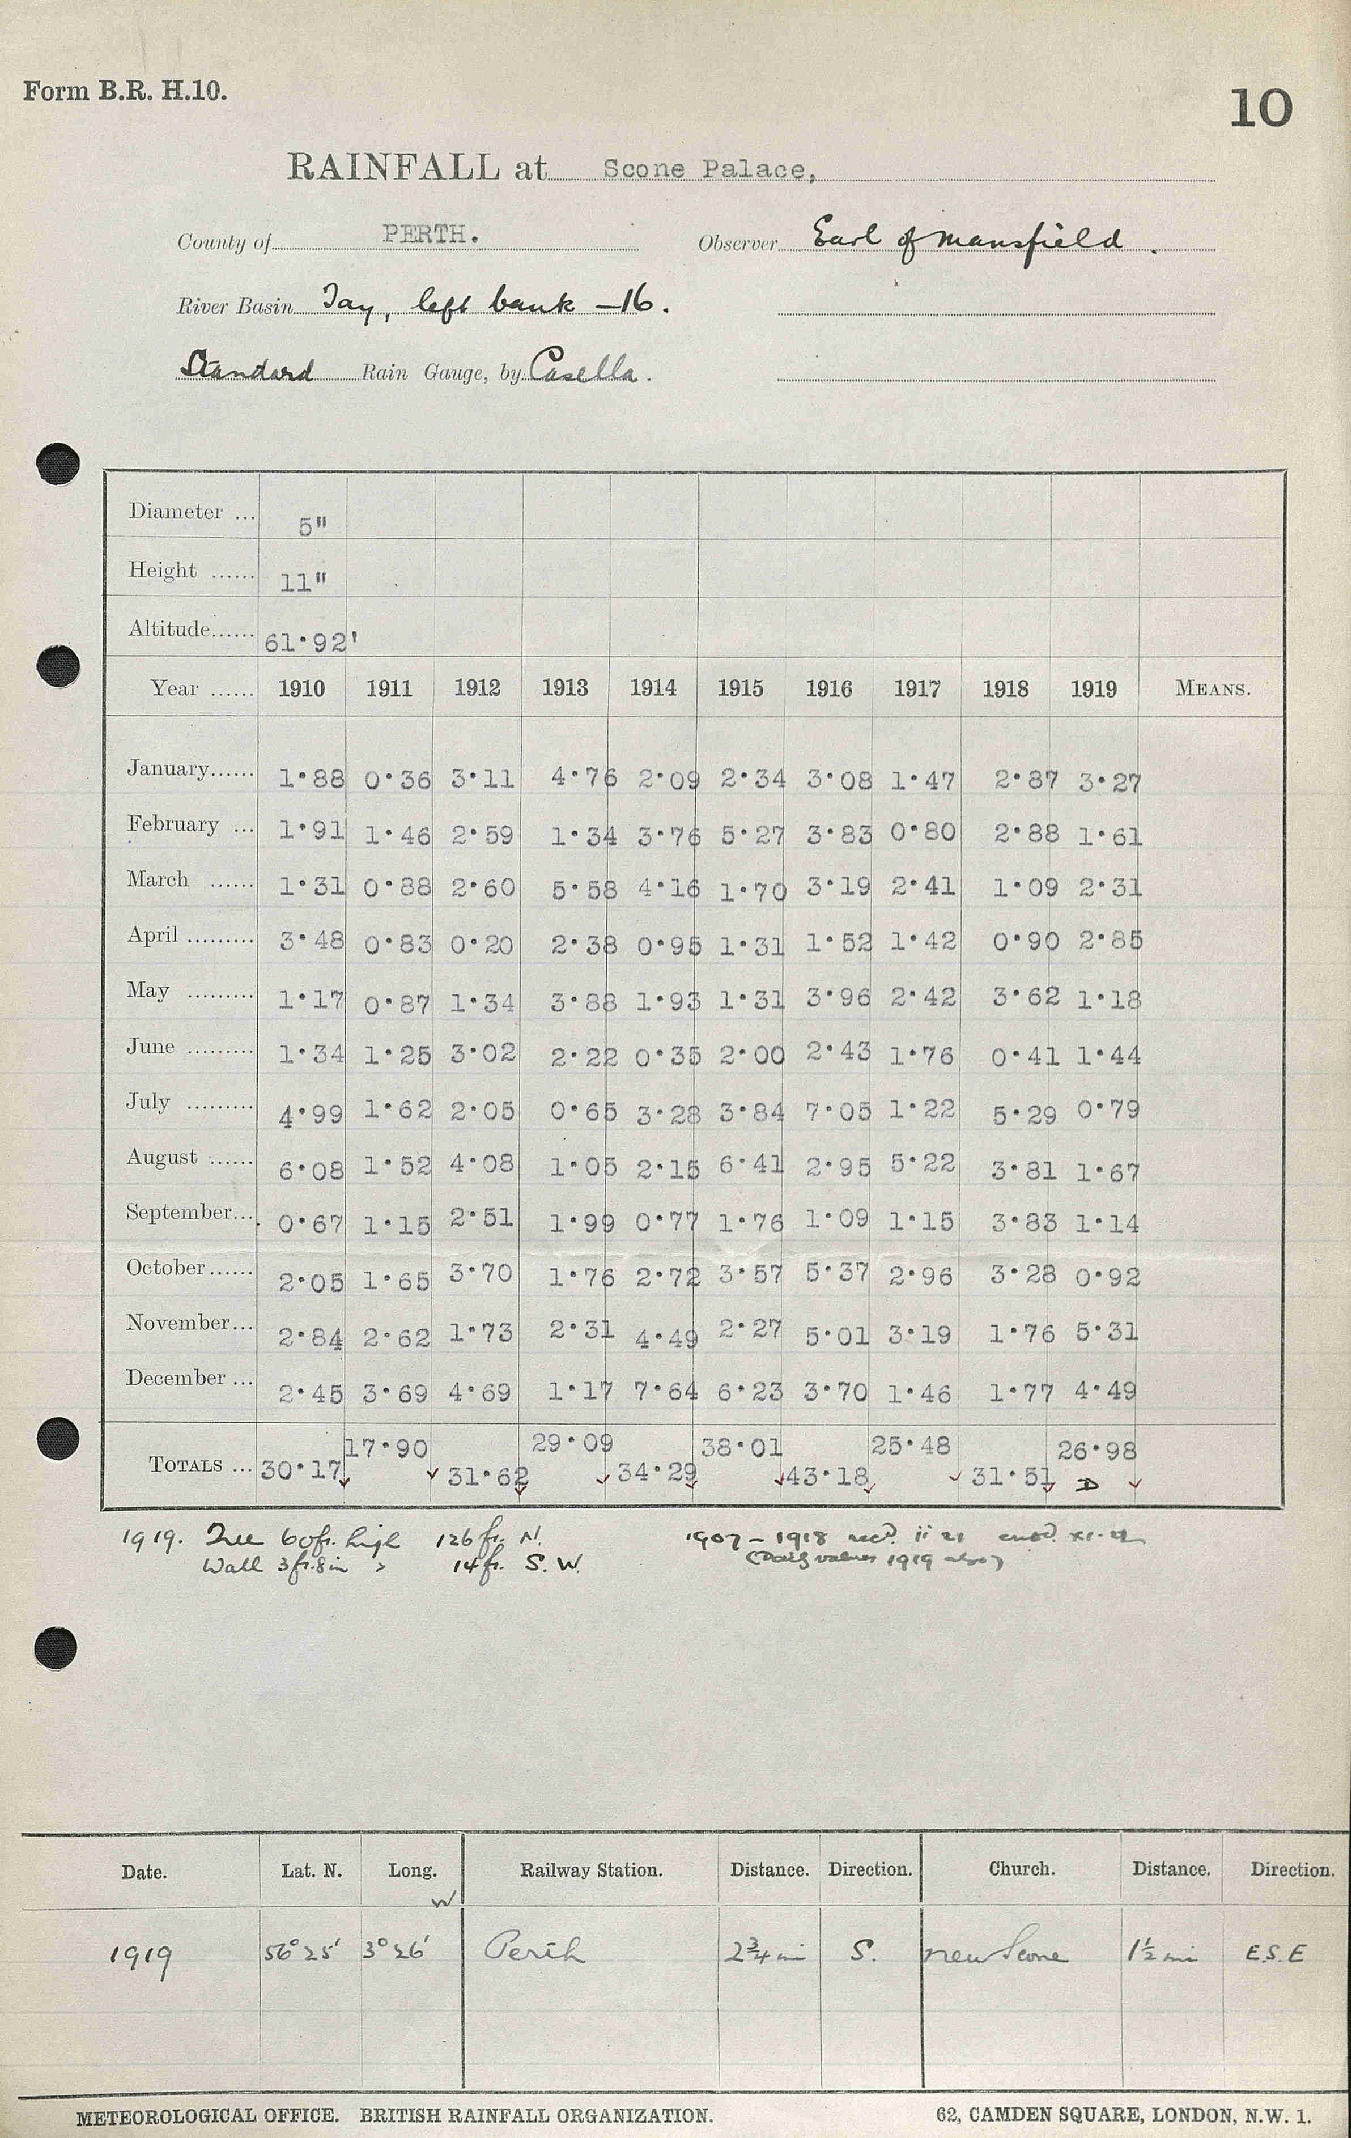 Form B.R. H.10.
10
RAINFALL at Scone Palace,
County of PERTH. Observer Earl of Mansfield.
River Basin Tay, left bank —16.
Standard Rain Gauge, by Casella.
Diameter ... 5"
Height ...... 11"
Altitude...... 61·92'
Year ...... 1910 1911 1912 1913 1914 1915 1916 1917 1918 1919 MEANS.
January...... 1·88 0·36 3·11 4·76 2·09 2·34 3·08 1·47 2·87 3·27
February ... 1·91 1·46 2·59 1·34 3·76 5·27 3·83 0·80 2·88 1·61
March ...... 1·31 0·88 2·60 5·58 4·16 1·70 3·19 2·41 1·09 2·31
April ......... 3·48 0·83 0·20 2·38 0·95 1·31 1·52 1·42 0·90 2·85
May ......... 1·17 0·87 1·34 3·88 1·93 1·31 3·96 2·42 3·62 1·18
June ......... 1·34 1·25 3·02 2·22 0·35 2·00 2·43 1·76 0·41 1·44
July ......... 4·99 1·62 2·05 0·65 3·28 3·84 7·05 1·22 5·29 0·79
August ...... 6·08 1·52 4·08 1·05 2·15 6·41 2·95 5·22 3·81 1·67
September... 0·67 1·15 2·51 1·99 0·77 1·76 1·09 1·15 3·83 1·14
October...... 2·05 1·65 3·70 1·76 2·72 3·57 5·37 2·96 3·28 0·92
November... 2·84 2·62 1·73 2·31 4·49 2·27 5·01 3·19 1·76 5·31
December ... 2·45 3·69 4·69 1·17 7·64 6·23 3·70 1·46 1·77 4·49
TOTALS ... 30·17 17·90 31·62 29·09 34·29 38·01 43·18 25·48 31·51 26·98
D
1919. Tree 60ft. high 126ft. N. 1907 – 1918 recd. ii 21
Wall 3ft.8in " 14ft. S.W. (Daily values 1919 also)
Date. Lat. N. Long. W Railway Station. Distance. Direction. Church. Distance. Direction.
1919 56° 25' 3° 26' Perth 2¾ mi S. New Scone 1½ mi E.S.E
METEOROLOGICAL OFFICE. BRITISH RAINFALL ORGANIZATION. 62, CAMDEN SQUARE, LONDON, N.W. 1.